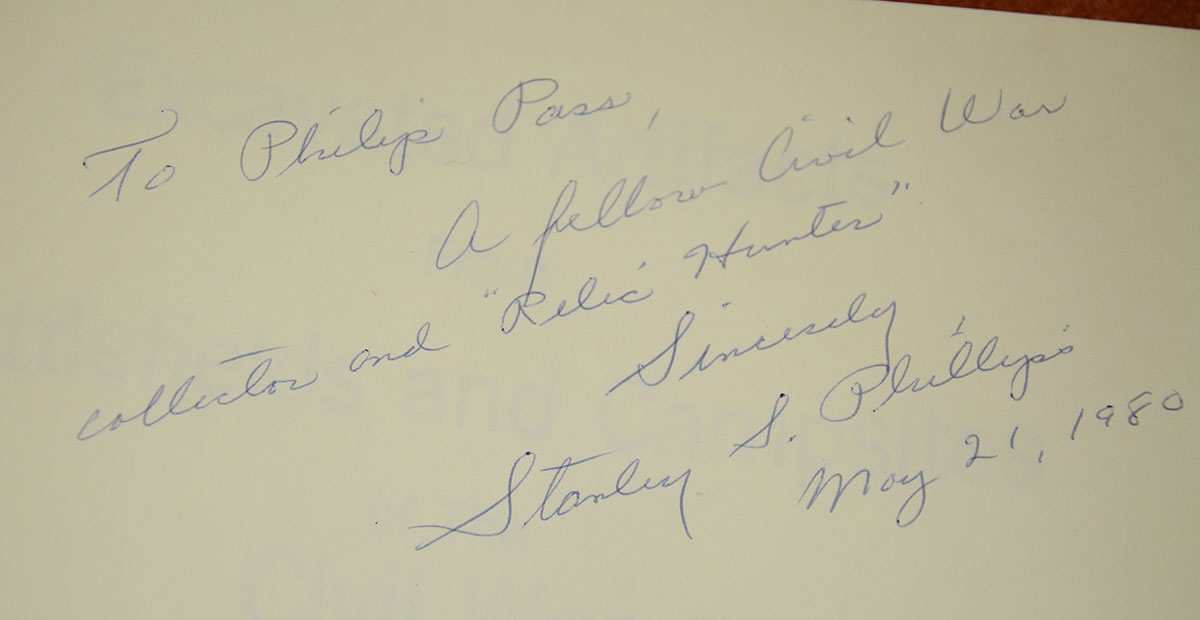 To Philip Pass,
A fellow Civil War
collector and "Relic Hunter"
Sincerely,
Stanley S. Phillips
May 21, 1980
Excavated Artifacts
from
Battlefields and Campsites
of the
Civil War